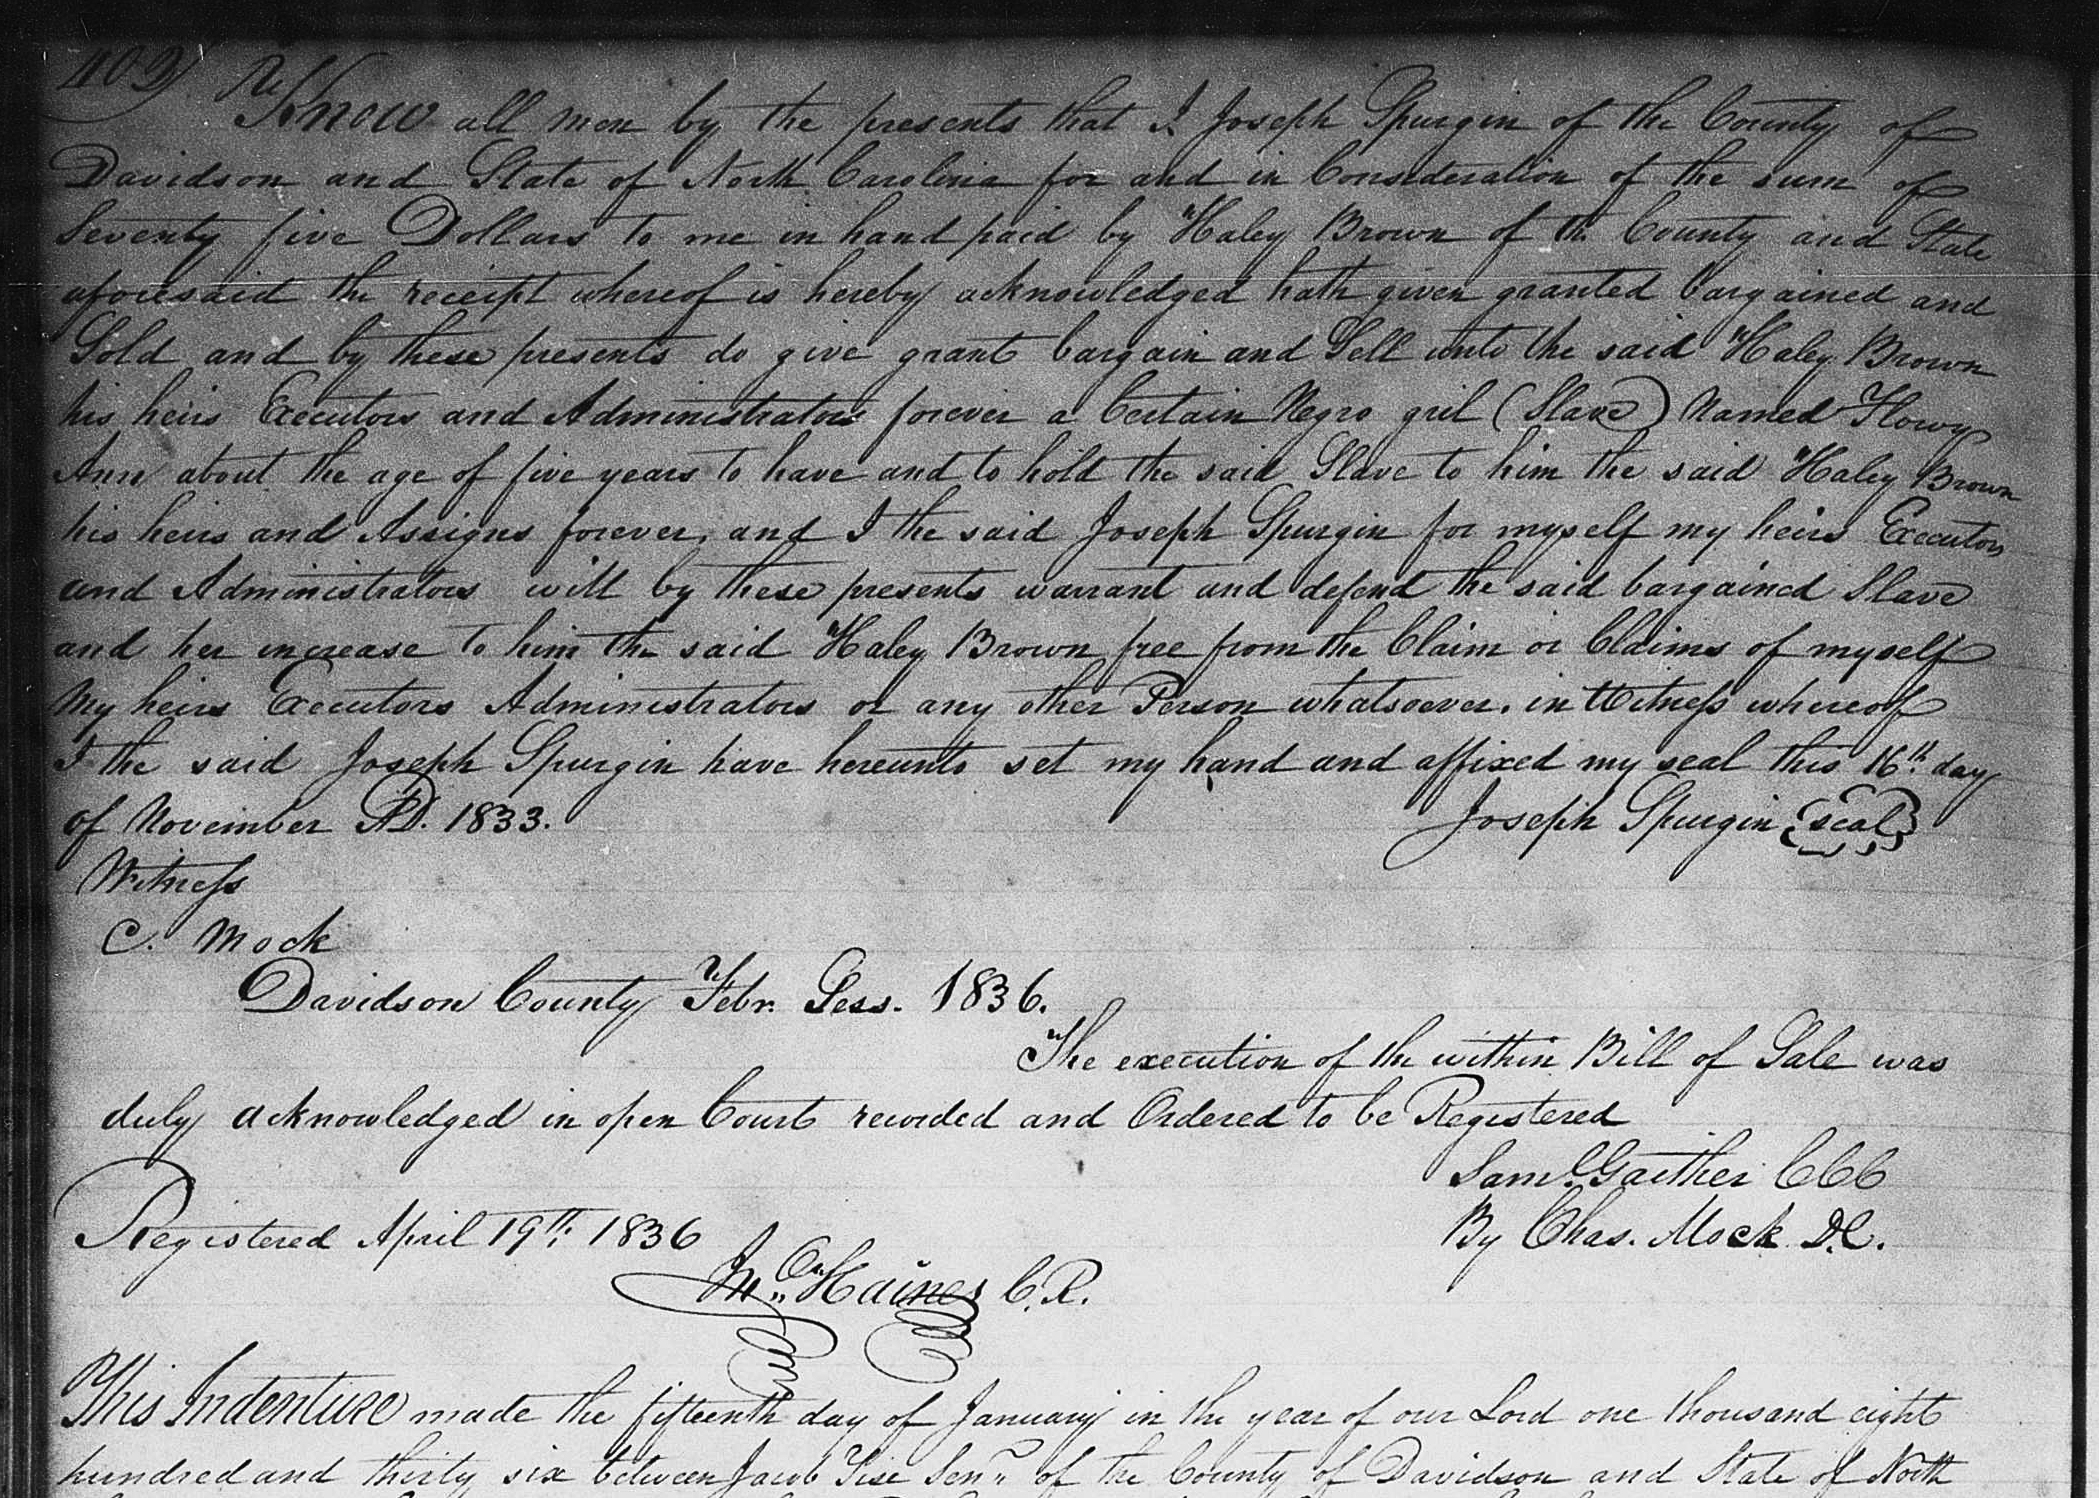 402
Know all men by the presents that I Joseph Spurgin of the County of
Davidson and State of North Carolina for and in Consideration of the sum of
Seventy five Dollars to me in hand paid by Haley Brown of the County and State
aforesaid the receipt whereof is hereby acknowledged hath given granted bargained and
Sold and by these presents do give grant bargain and Sell unto the said Haley Brown
his heirs Executors and Administrators forever a Certain Negro gril (Slave) Named
Ann about the age of five years to have and to hold the said Slave to him the said Haley Brown
his heirs and Assigns forever, and I the said Joseph Spurgin for myself my heirs Executors
and Administrators will by these presents warrant and defend the said bargained Slave
and her increase to him the said Haley Brown free from the Claim or Claims of myself
My heirs Executors Administrators or any other Person whatsoever. in Witness whereof
I the said Joseph Spurgin have hereunto set my hand and affixed my seal this 16th day
of November AD. 1833. Joseph Spurgin seal
Witness
C. Mock
Davidson County Febr. Sess. 1836.
The execution of the within Bill of Sale was
duly acknowledged in open Court recorded and Ordered to be Registered
Saml Gaither CCC
By Chas. Mock D.C.
Registered April 19th. 1836
Haines C.R.
This Indenture made the fifteenth day of January in the year of our Lord one thousand eight
hundred and thirty six between Jacob Senr of the County of Davidson and State of North